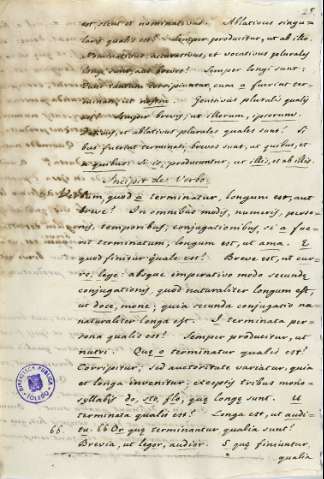 est, sicut et nominativus. Ablativus singu-
laris qualis est? Semper producitur, ut ab illo.
Nominativus accusativus, et vocativus pluralis
longi sunt, aut breves? Semper longi sunt:
tunc tantum corripiuntur, cum a fuerint ter-
minati, ut nostra. Genitivus pluralis qualis
est? Semper brevis, ut illorum, ipsorum.
Dativus, et ablativus plurales quales sunt? Si
bus fuerint terminati, breves sunt, ut quibus, et
a quibus: Si is, producuntur, ut illis, et ab illis.
Incipit de Verbo.
Verbum, quod a terminatur, longum est, aut
breve? In omnibus modis, numeris, perso-
nis, temporibus, conjugationibus, si a fue-
rit terminatum, longum est, ut ama. E
quod finitur quale est? Breve est, ut cur-
re, lege: absque imperativo modo secundę
conjugationis, quod naturaliter longum est,
ut doce, mone; quia secunda conjugatio na-
naturaliter longa est. I terminata per-
sona qualis est? Semper producitur, ut
nutri. Quę o terminatur qualis est?
Corripitur, sed autoritate variatur, quia
et longa invenitur; exceptis tribus mono-
syllabis do, sto, flo, quę longę sunt. U
terminata qualis est? Longa est, ut audi-
66. tu. 66 Or quę terminantur qualia sunt?
Brevia, ut legor, audior. S quę finiuntur
qualia
BIBLIOTECA PUBLICA
TOLEDO